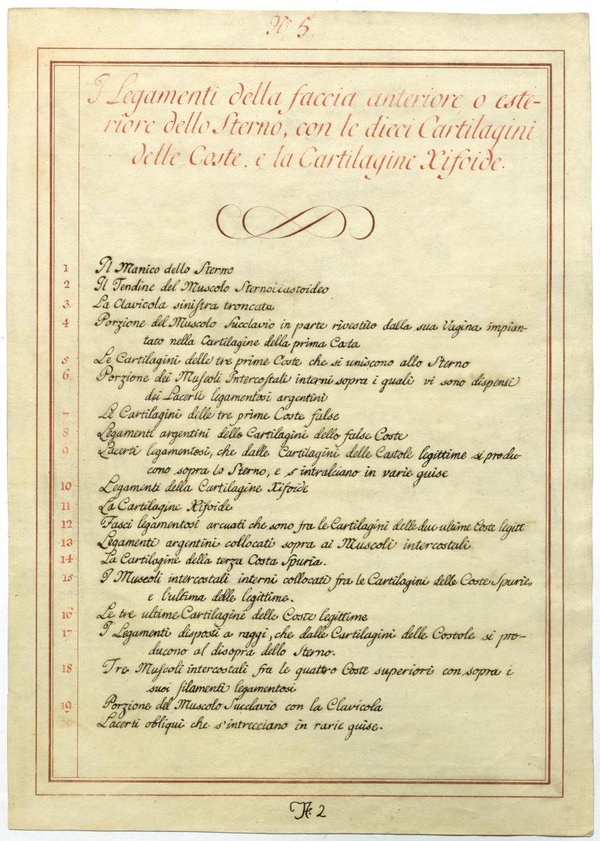 N.° 5.
I Legamenti della faccia anteriore o este-
riore dello Sterno, con le dieci Cartilagini
delle Coste, e la Cartilagine Xifoide.
1 Il Manico dello Sterno
2 Il Tendine del Muscolo Sternoicastoideo
3. La Clavicola sinistra troncata
4 Porzione del Muscolo Succlavio in parte rivestito dalla sua Vagina impian-
tato nella Cartilagine della prima Costa
5 Le Cartilagini delle tre prime Coste che si uniscono allo Sterno
6. Porzione dei Muscoli Intercostali interni sopra i quali vi sono dispensi
dei Lacerti legamentosi argentini
7 Le Cartilagini dille tre prime Coste false
8 Legamenti argentini delle Cartilagini dello false Coste
9 Lacerti legamentosi, che dalle Cartilagini delle Costole legittime si produ-
cono sopra lo Sterno, e s'intralciano in varie guise
10 Legamenti della Cartilagine Xifoide
11 La Cartilagine Xifoide
12 Fasci legamentosi arcuati che sono fra le Cartilagini delle due ultime Coste legitt
13 Legamenti argentini collocati sopra ai Muscoli intercostali.
14 La Cartilagine della terza Costa Spuria.
15 I Muscoli intercostali interni collocati fra le Cartilagini delle Coste Spurie,
e l'ultima delle legittime.
16 Le tre ultime Cartilagini delle Coste legittime
17 I Legamenti disposti a raggi, che dalle Cartilagini delle Costole si pro-
ducono al disopra dello Sterno.
18 Tre Muscoli intercostali fra le quattro Coste superiori con sopra i
suoi filamenti legamentosi
19 Porzione del Muscolo Succlavio con la Clavicola
Lacerti obliqui che s'intrecciano in rarie guise.
N.° 2